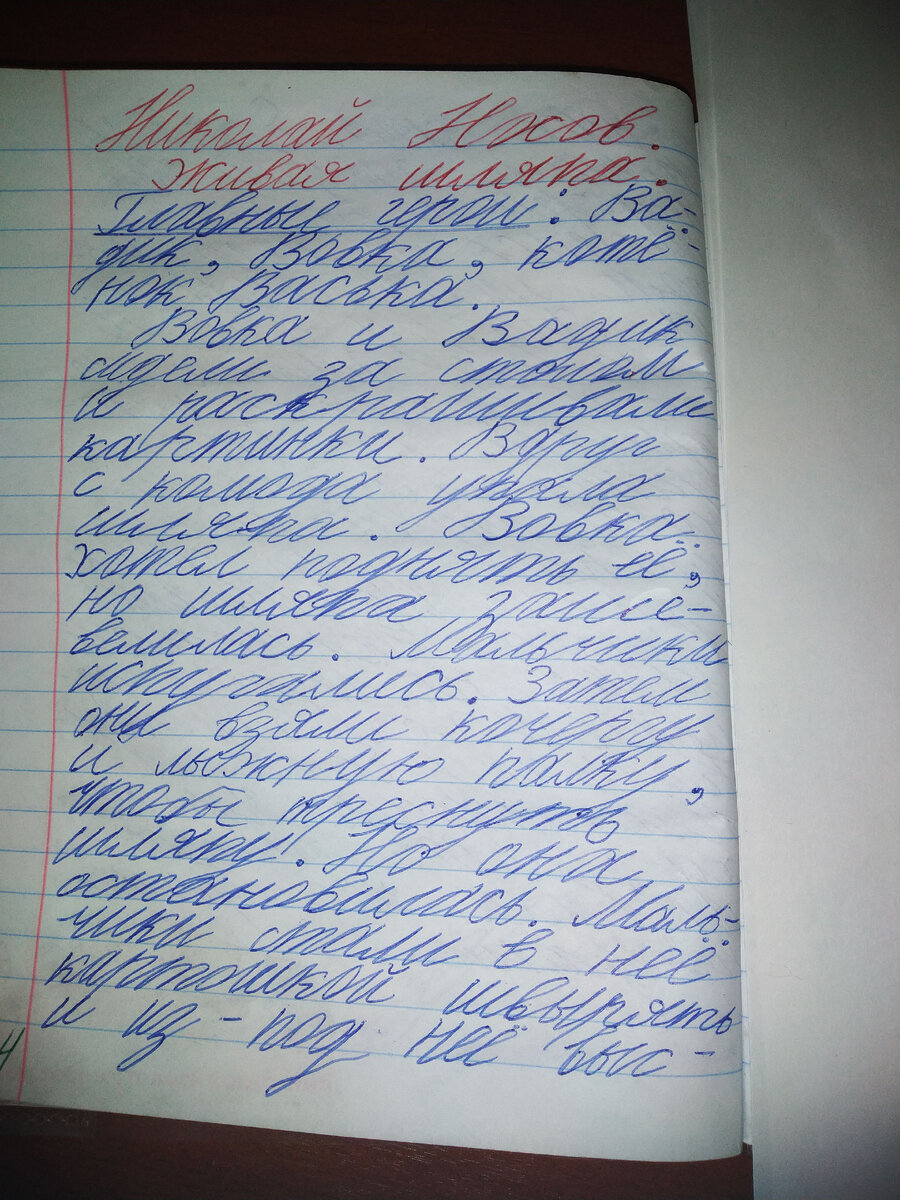 Николай Носов.
Живая шляпа.
Главные герои: Ва-
дик, Вовка, котё-
нок Васька.
Вовка и Вадик
сидели за столом
и раскрашивали
картинки. Вдруг
с комода упала
шляпа. Вовка
хотел поднять её,
но шляпа заше-
велилась. Мальчики
испугались. Затем
они взяли кочергу
и лыжную палку,
чтобы треснуть
шляпу. Но она
остановилась. Маль-
чики стали в неё
картошкой швырять
и из-под неё выс-
4